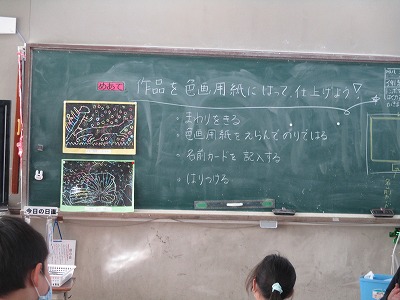 めあて 作品を色画用紙にはって、仕上げよう♡
・まわりをきる
・色画用紙をえらんでのりではる
・名前カードを記入する
・はりつける
今日の日直